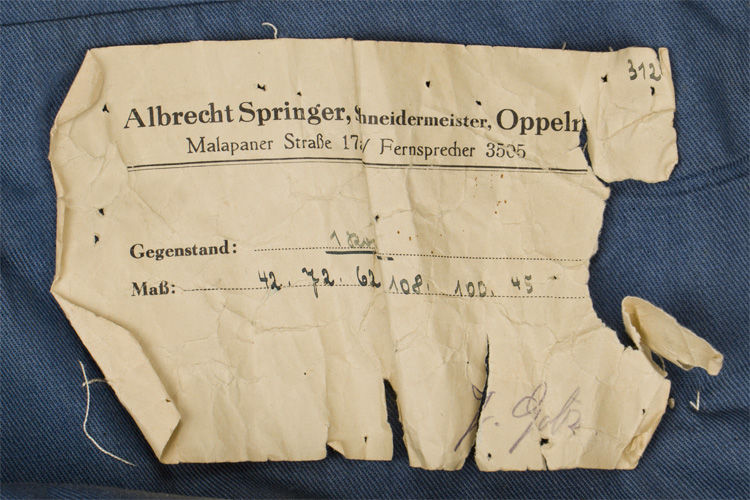 312
Albrecht Springer, Schneidermeister, Oppeln
Malapaner Straße 17a / Fernsprecher 3505
Gegenstand: 1
Maß: 42. 72. 62 108. 100. 45